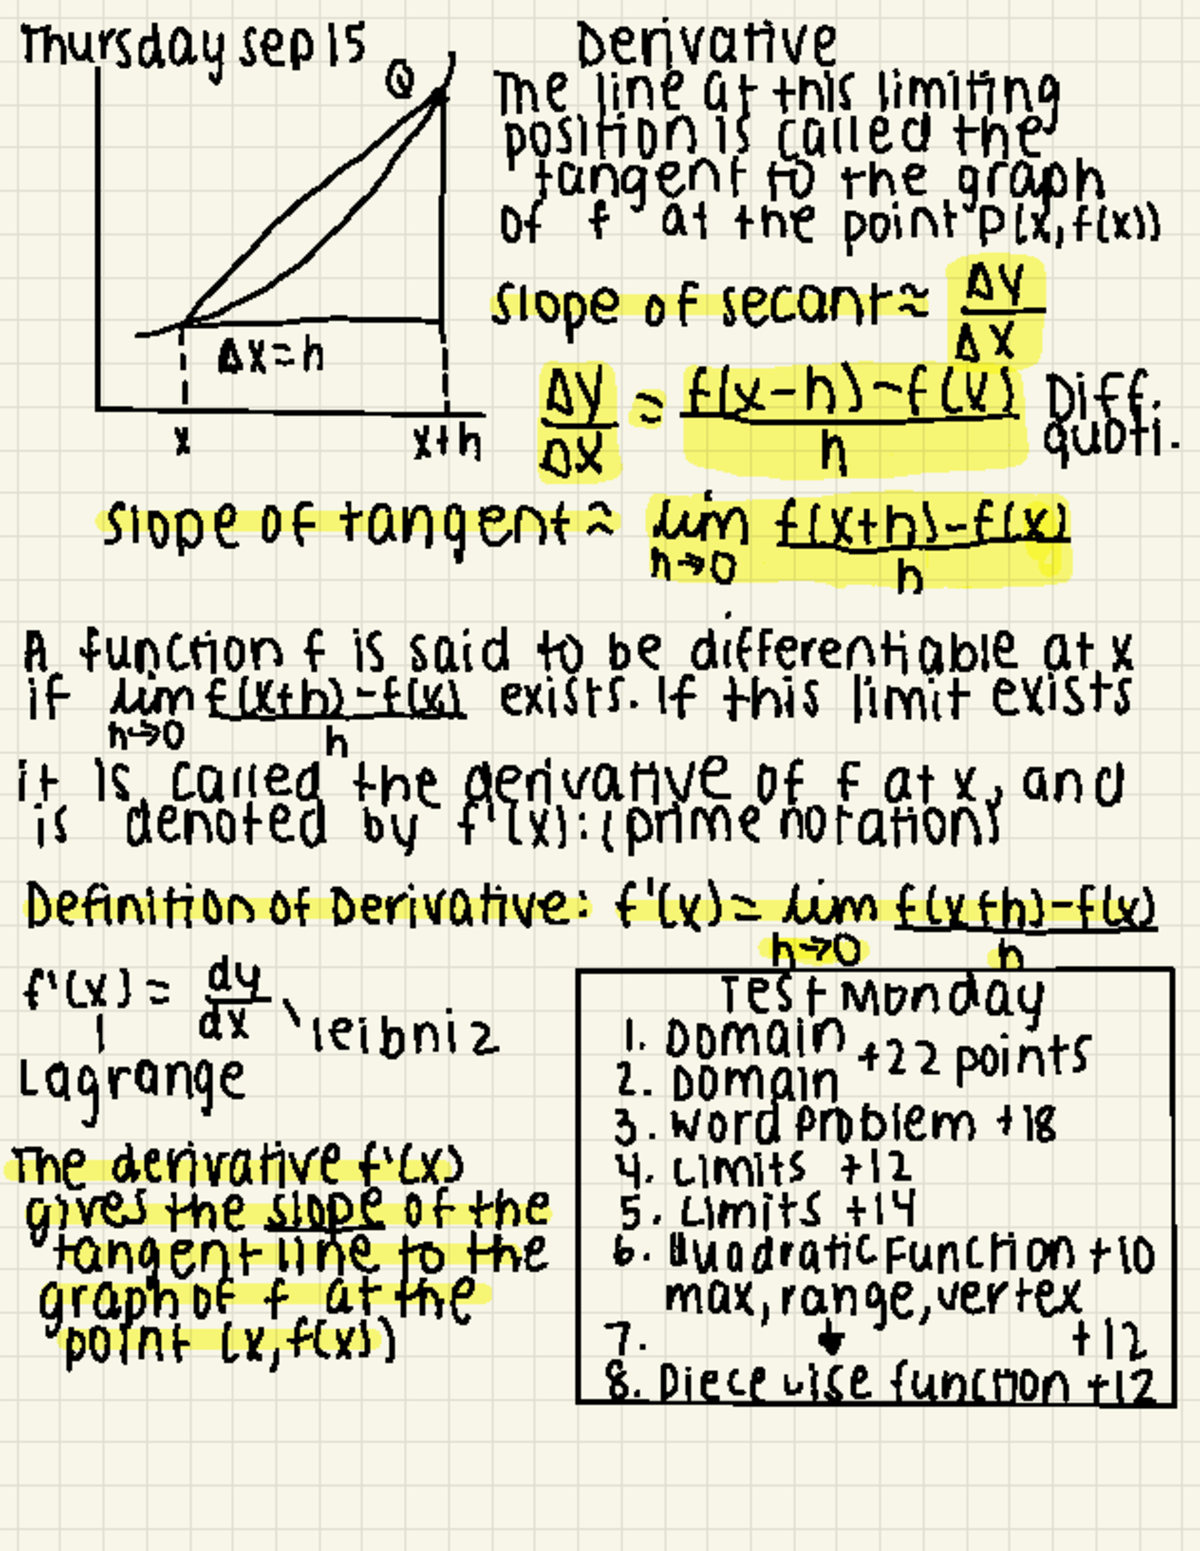 Thursday sep 15
Q
Δx=h
x
x+h
Derivative
The line at this limiting
position is called the
tangent to the graph
of f at the point P(x,f(x))
slope of secant≈ Δy/Δx
Δy/Δx = f(x-h)-f(x)/h Diff. quoti.
slope of tangent≈ lim h→0 f(x+h)-f(x)/h
A function f is said to be differentiable at x
if lim h→0 f(x+h)-f(x)/h exists. If this limit exists
it is called the derivative of f at x, and
is denoted by f'(x): (prime notation)
Definition of Derivative: f'(x)= lim h→0 f(x+h)-f(x)/h
f'(x) = dy/dx \ leibniz
Lagrange
The derivative f'(x)
gives the slope of the
tangent line to the
graph of f at the
point (x,f(x))
Test Monday
1. Domain
2. Domain +22 points
3. Word problem +18
4. Limits +12
5. Limits +14
6. Quadratic Function +10
max, range, vertex
7. ↓ +12
8. Piece wise function +12